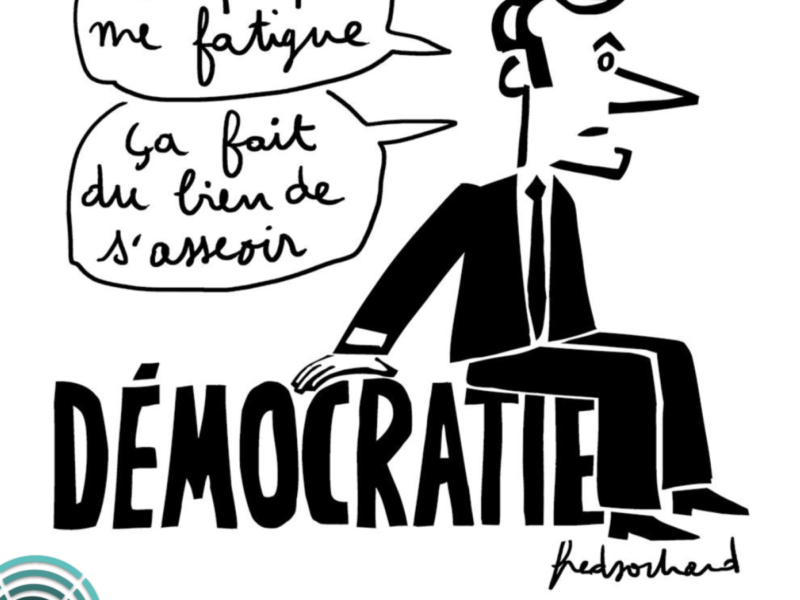 me fatigue
ça fait
du bien de
s'asseoir
DÉMOCRATIE
fredsochard